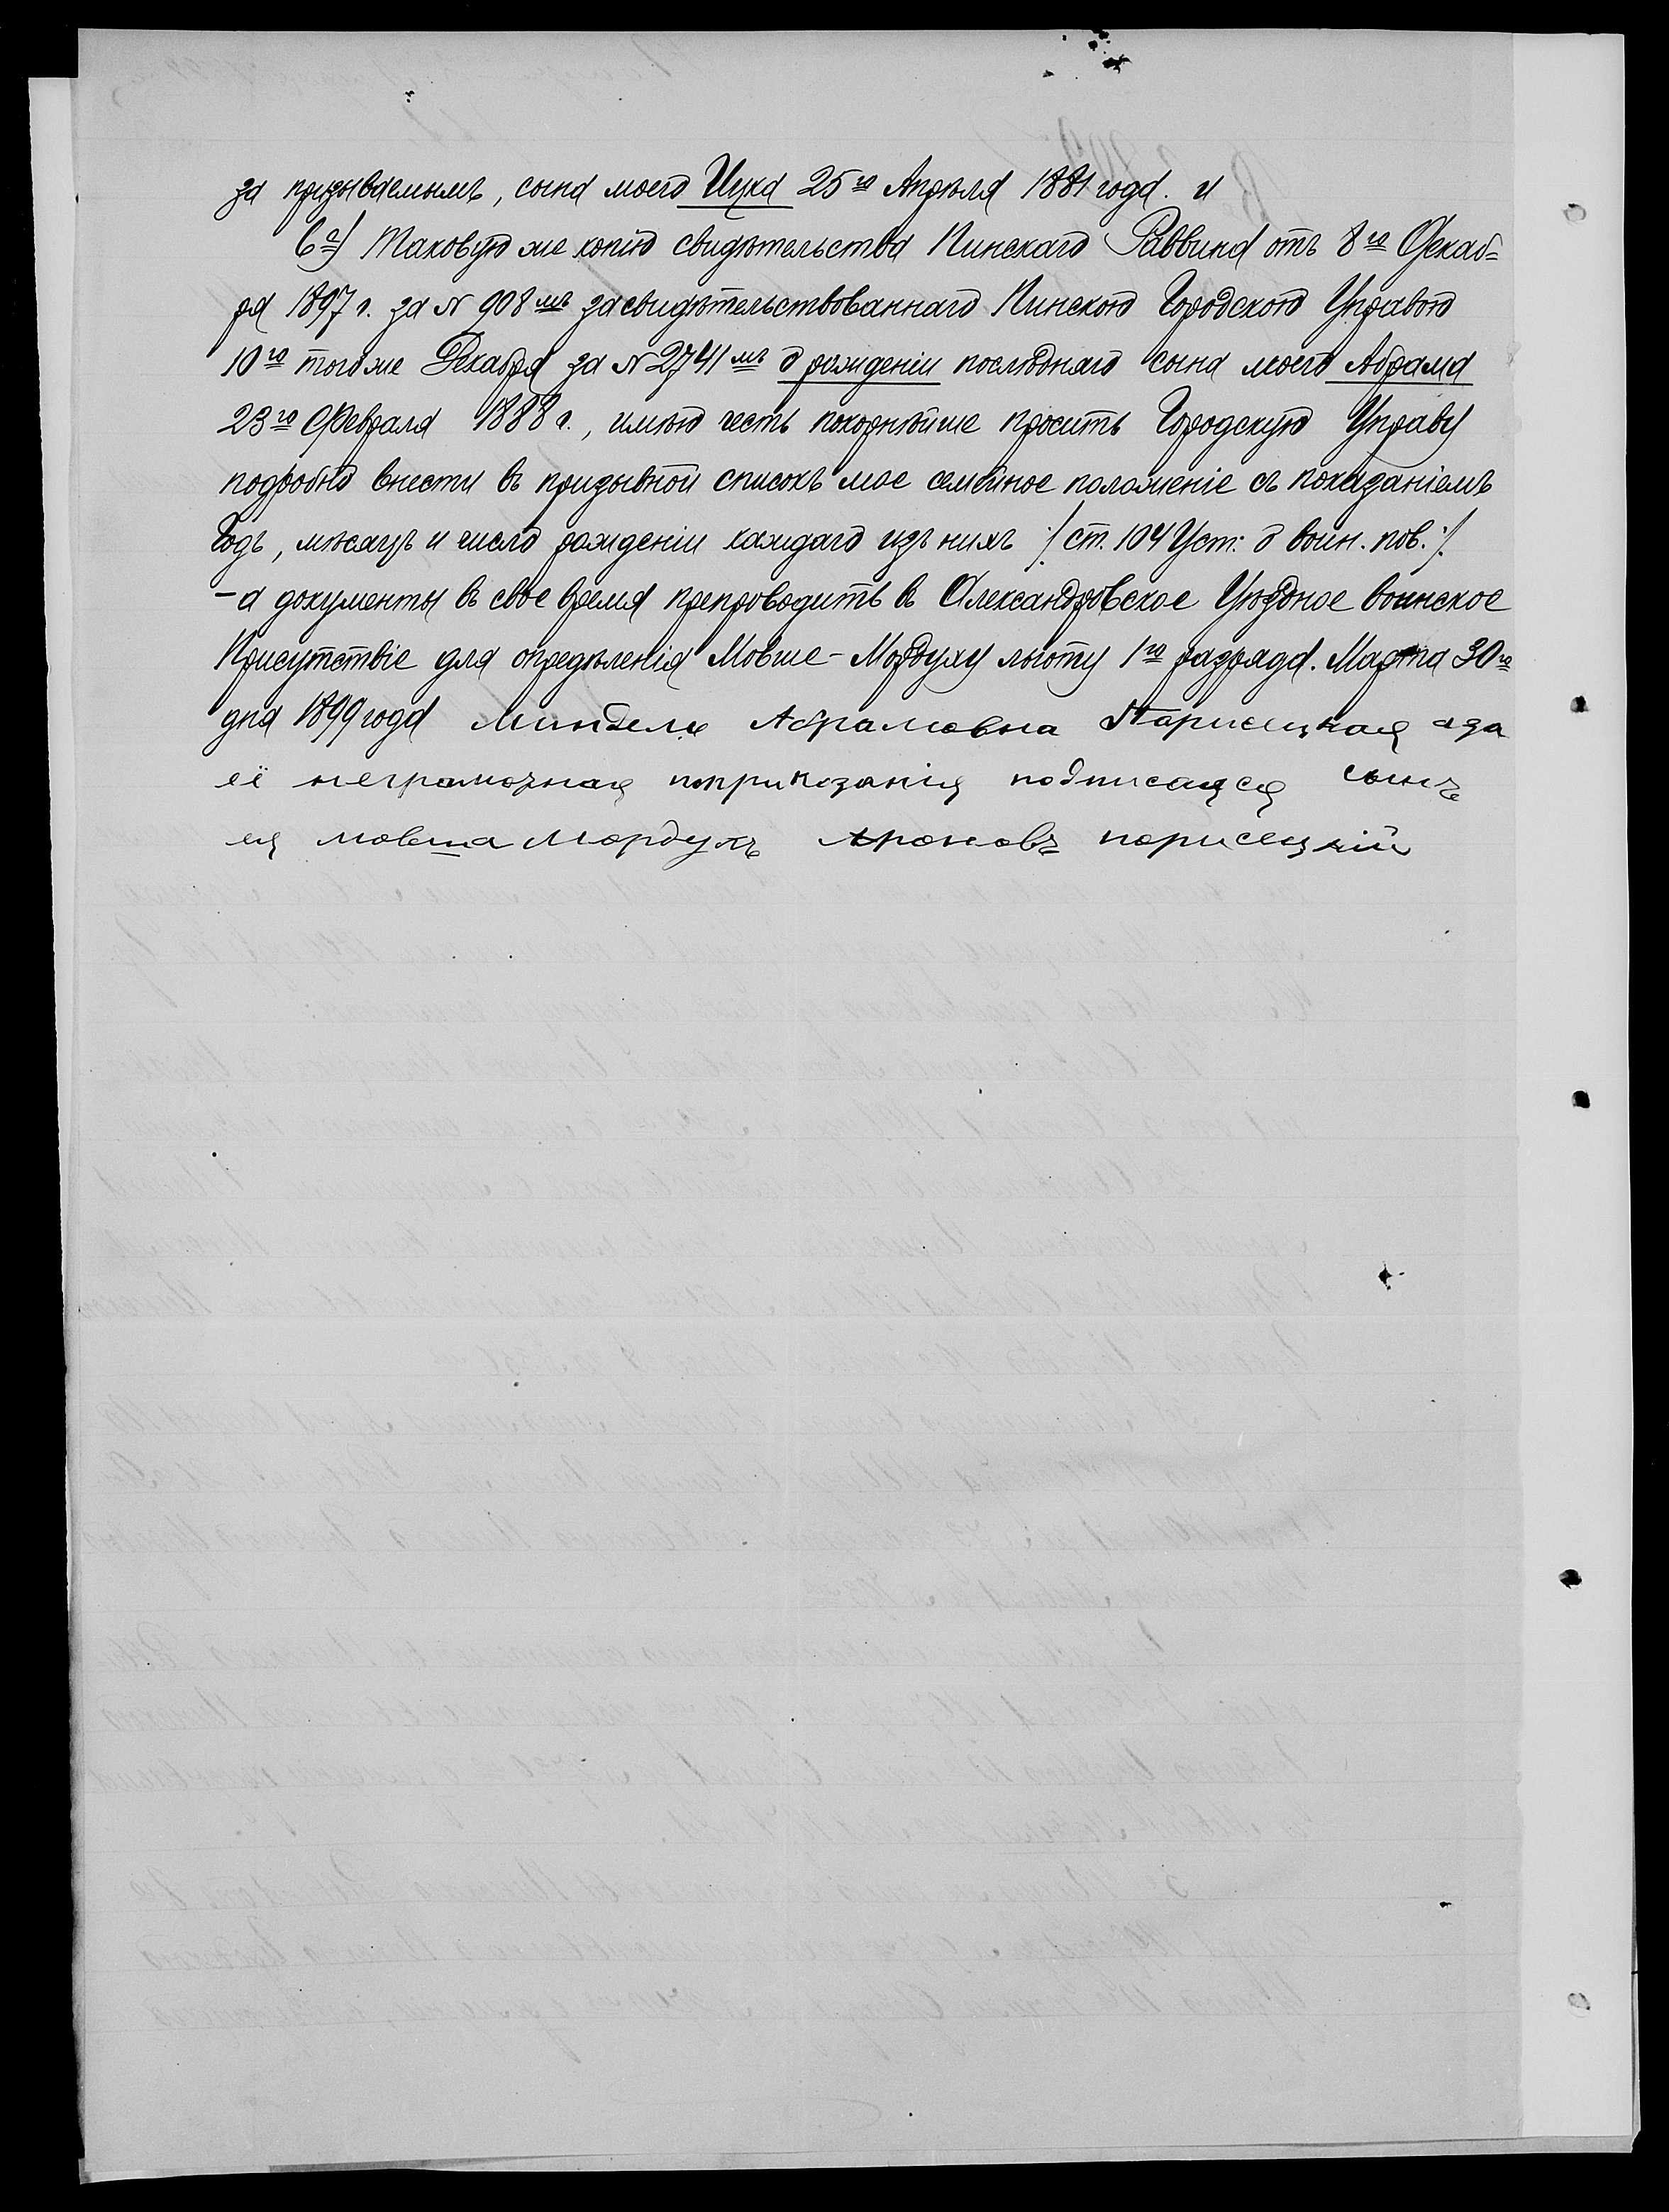 за призываемымъ, сына моего Ицка 25го Апрѣля 1881 года. и
6е) Таковую же копію свидѣтельства Пинскаго Раввина отъ 8го Декаб=
ря 1897 г. за N 908мъ засвидѣтельствованнаго Пинскою Городскою Управою
10го тогоже Декабря за N 2741мъ о рожденіи послѣдняго сына моего Абрама
23го Февраля 1888 г., имѣю честь покорнѣйше просить Городскую Управу
подробно внести въ призывной списокъ мое семейное положеніе съ показаніемъ
Годъ, мѣсяцъ и число рожденіи каждаго изъ нихъ /: ст. 104 Уст: о воин. пов. :/
- а документы въ свое время препроводить въ Александровское Уѣздное воинское
Присутствіе для опредѣленія Мовше-Мордуху льготу 1го разряда. Марта 30го
дня 1899 года Миндель Абрамовна Парисецкая аза
её неграмотная поприказанія подписался сынъ
ея мовша Мордухъ Ароновъ парисецкій